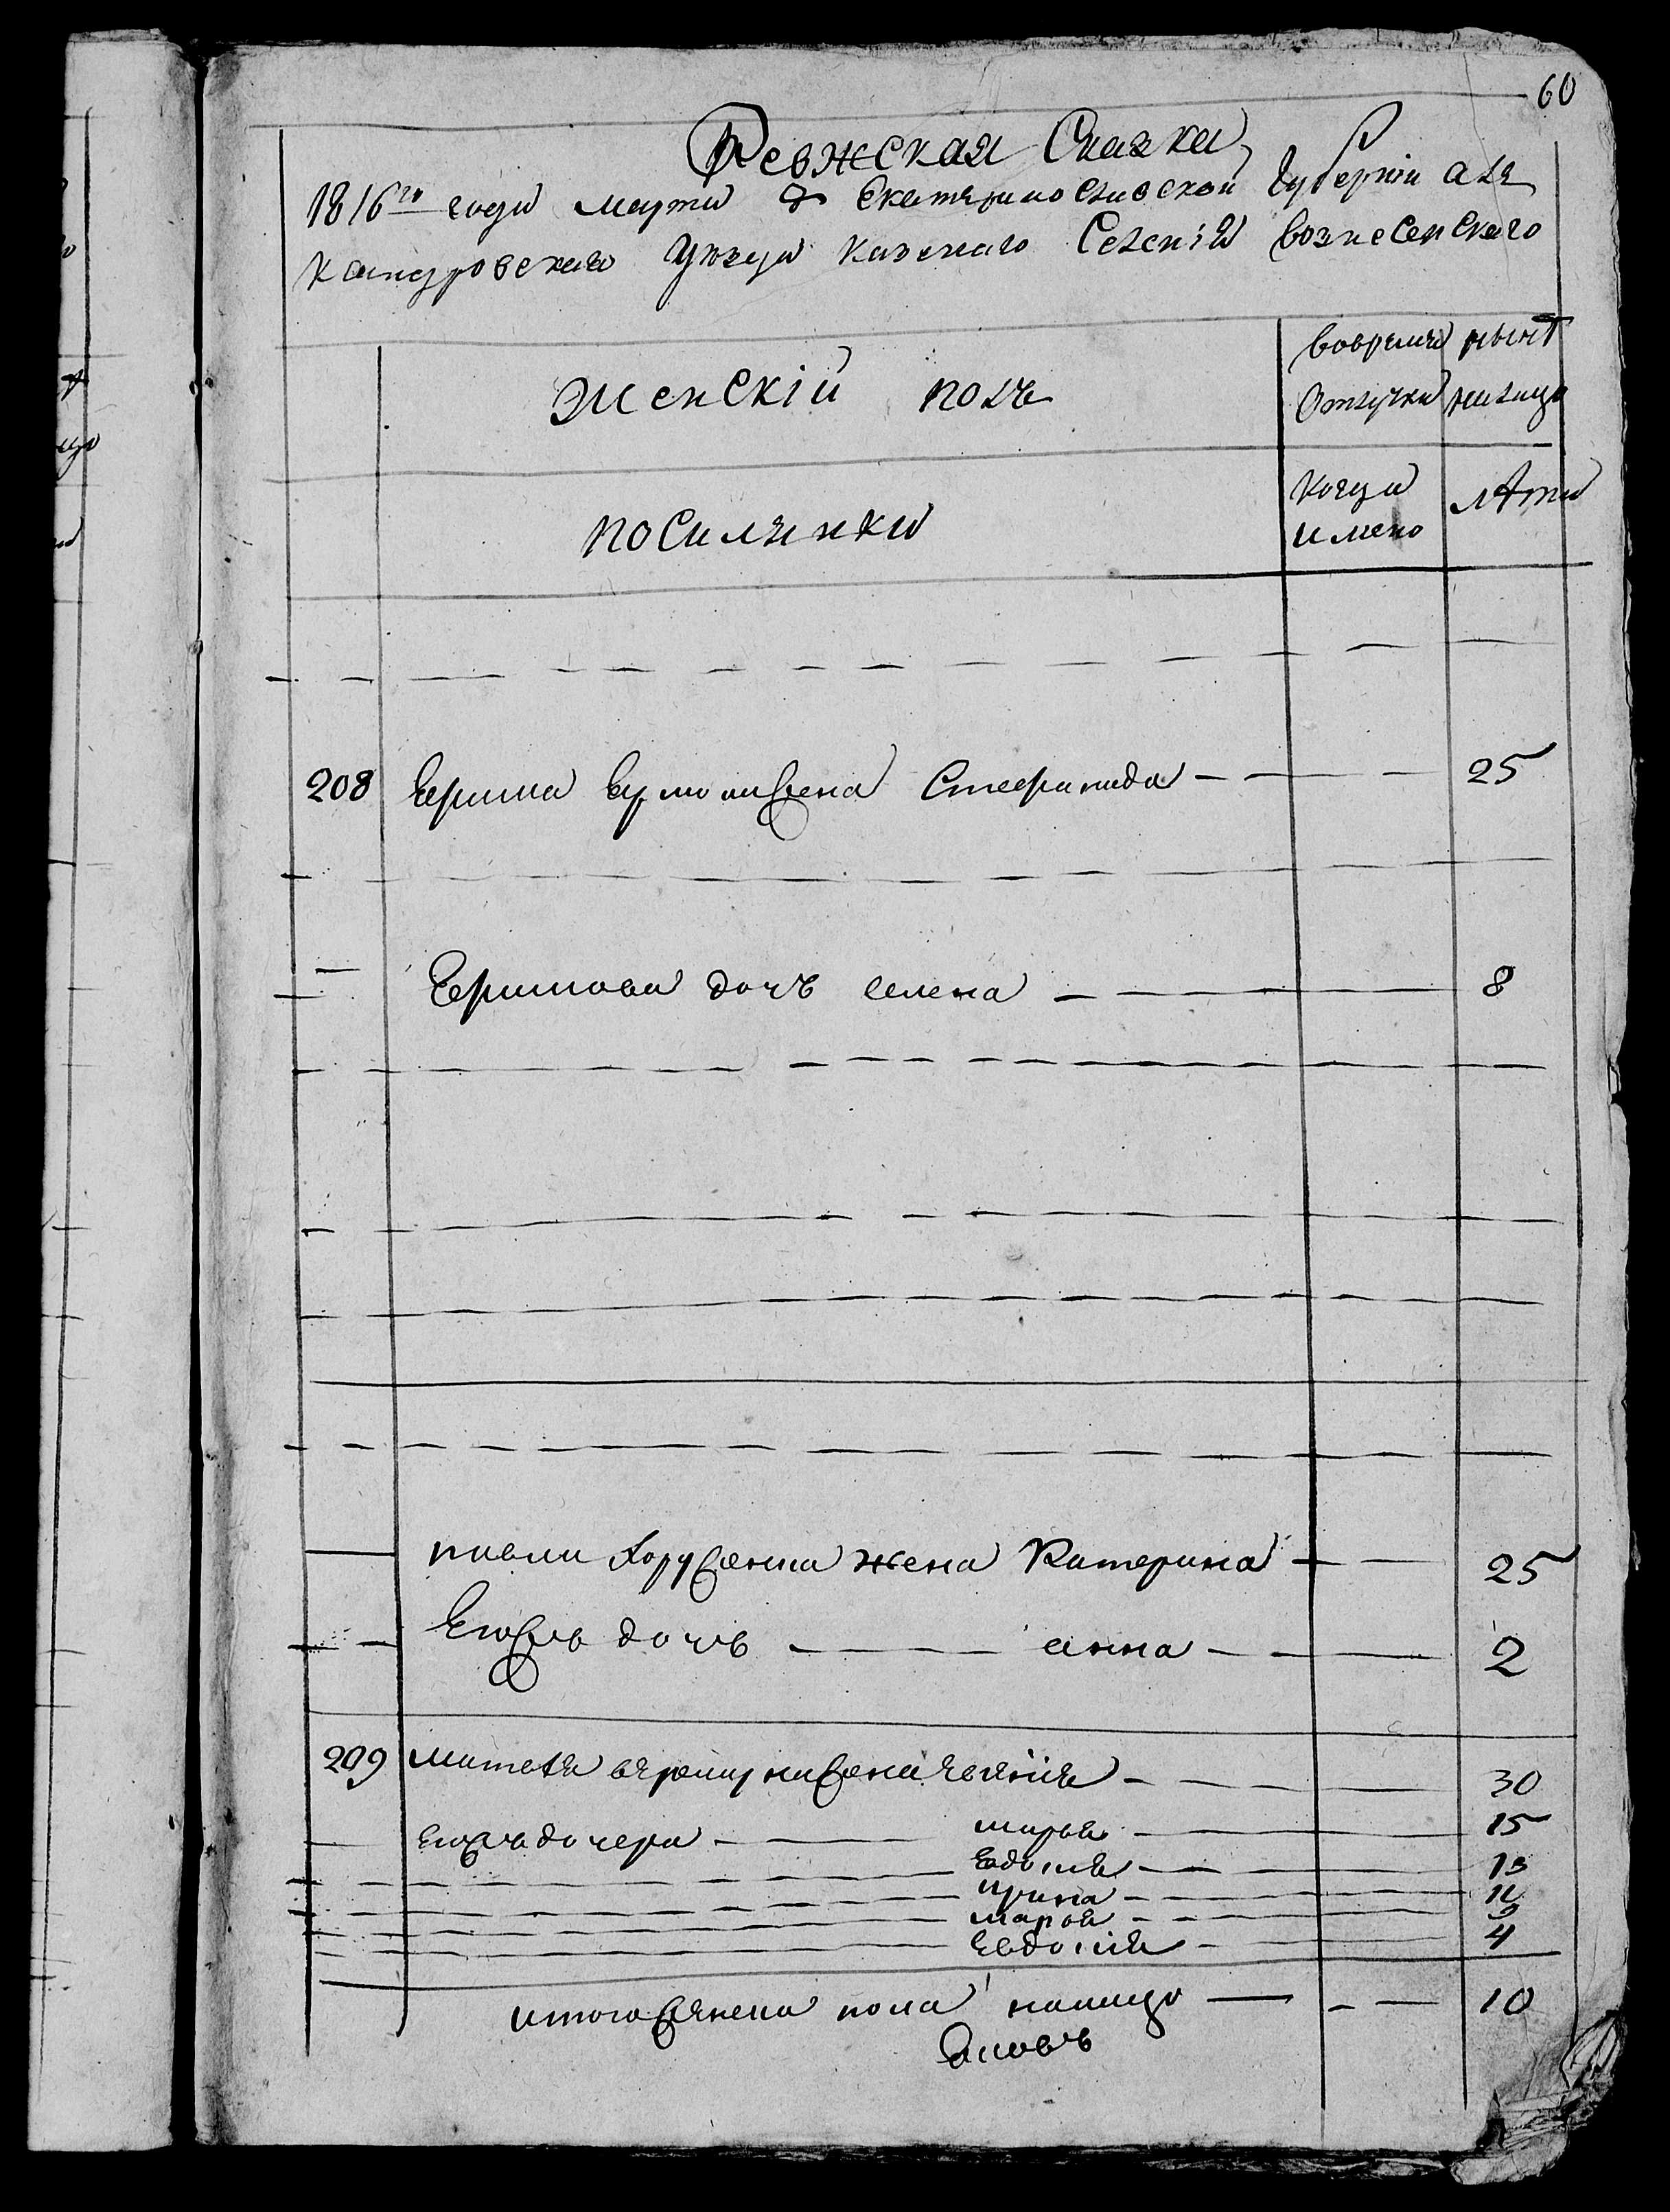 60
Ревжская Сказка
1816го года марта Екатеринославской Губернии але
ксандровского Уезда казенаго Селения вознесенскаго
женскій полъ
вовремя
отлучки
нынѣ
налицо
поселянки
когда
имено
лѣта
208 Ефима жена Стефанида 25
Ефимова дочъ елена 8
павла жена Катерина 25
Еговъ дочъ анна 2
209 матвея жена 30
еговъ дочери марья 15
Евдокия 13
ирина 11
марфа 9
Евдокия 4
итого женска пола налицо 10